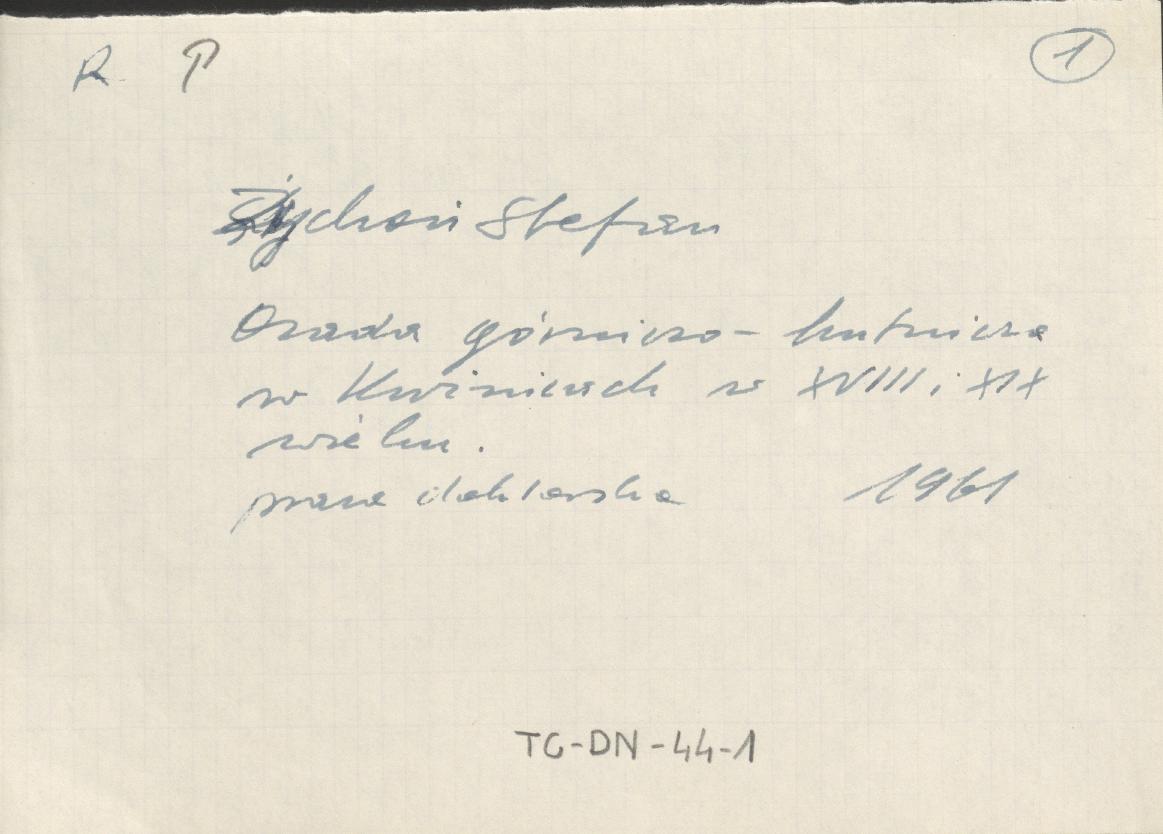 R P 1
Żychoń Stefan
Osada górniczo-hutnicza
w Kuźnicach w XVIII i XIX
wieku.
praca doktorska 1961
TG-DN-44-1